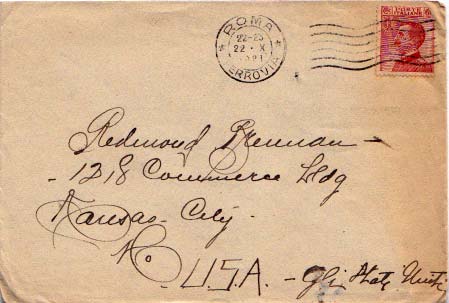 ROMA
22-23
22 · X
1921
FERROVIA
POSTE
ITALIANE
Redmond Brennan -
- 1218 Commerce Bldg
Kansas City.
Mo.
U.S.A. - Gli Stati Uniti